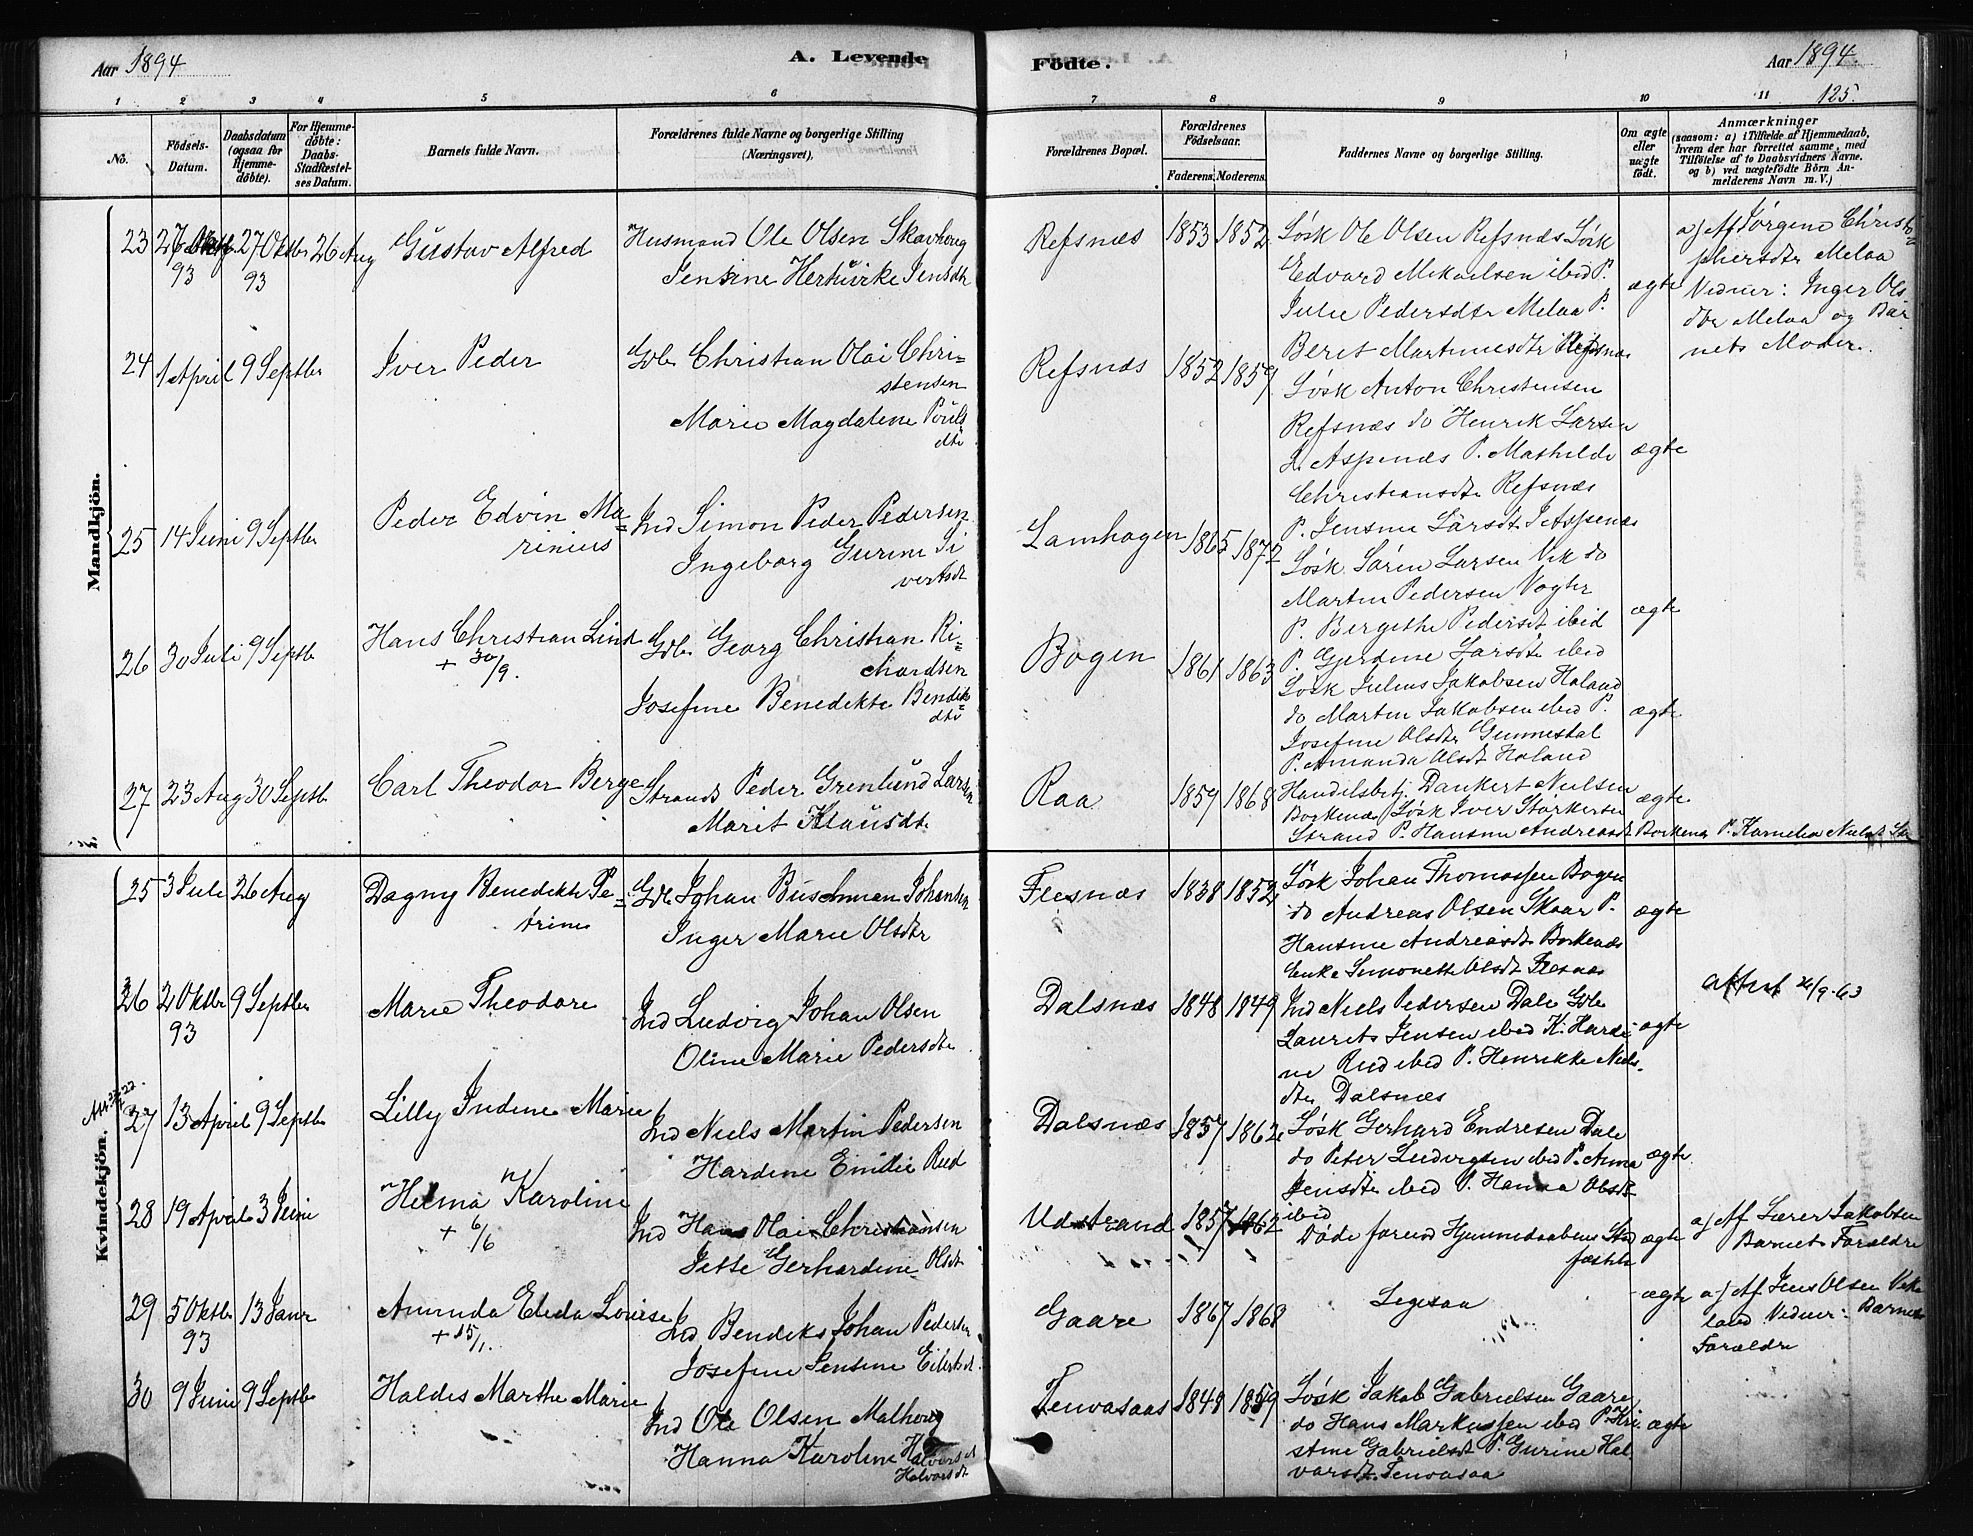 Aar 1894
A. Levende
Födte.
Aar 1894.
125.
1 2 3 4 5 6 7 8 9 10 11
No.
Födsels-Datum.
Daabsdatum (ogsaa for Hjemme-döbte).
For Hjemme-döbte: Daabs-Stadfæstel-ses Datum.
Barnets fulde Navn.
Forældrenes fulde Navne og borgerlige Stilling (Næringsvei),
Forældrenes Bopæl.
Forældrenes Födselsaar.
Faderens. Moderens.
Faddernes Navne og borgerlige Stilling.
Om ægte eller uægte födt.
Anmærkninger
(saasom: a) i Tilfælde af Hjemmedaab, hvem der har forrettet samme, med Tilföielse af to Daabsvidners Navne. og b) ved uægtefödte Börn An-melderens Navn m. V.)
Mandkjön.
23 27 Oktbr 93 27 Oktbr 93 26 Aug Gustav Alfred
Husmand Ole Olsen Skavhoug
Jensine Jensdtr
Refsnæs 1853 1852
Løsk Ole Olsen Refsnæs Løsk
Edvard Mikaelsen ibid P.
Julie Pedersdtr Melaa P.
Beret Martinusdtr Refsnæs
ægte
a) Af Jørgine Christo=
phersdtr Melaa
Vidner: Inger Ols
dtr Melaa og Bar
nets Moder.
24 1 April 9 Septbr Iver Peder
Gdbr Christian Olai Chri=
stensen
Marie Magdalene Pouls
dtr
Refsnæs 1852 1859
Løsk Anton Christensen
Refsnæs do Henrik Larsen
L. Aspenæs P. Mathilde
Christiansdtr Refsnæs
P. Jensine Larsdt L Aspenæs
ægte
25 14 Juni 9 Septbr Peder Edvin Ma=
rinius
Ind Simon Peder Pedersen
Ingeborg Gurine Si
vertsdt
Lamhagen 1865 1872
Løsk Søren Larsen Vik do
Martin Pedersen Vogter
P. Bergethe Pedersdt ibid
P. Gjerdine Larsdtr ibid
ægte
26 30 Juli 9 Septbr Hans Christian Lind
+ 30/9.
Gdbr Georg Christian Ri=
chardsen
Josefine Benedikte Bendiks
dtr
Bogen 1861 1863
Løsk Julius Jakobsen Haland
do Martin Jakobsen ibid P.
Josefine Olsdtr Gunnestal
P. Amanda Olsdt Haland
ægte
27 23 Aug 30 Septb Carl Theodor Berge
Strands Peder Grenlund Larsen
Marit Klausdtr
Raa 1859 1868
Handelsbetj. Dankert Nielsen
Borkenæs Løsk Iver Storkersen
Strand P. Hansine Andreasdt Borkenæs P. Kornelia Nielsdt
ægte
Kvindekjön.
25 3 Juli 26 Aug Dagny Benedikte Pe=
trine
Gdb Johan Buschman Johansen
Inger Marie Olsdtr
Flesnæs 1838 1852
Løsk Johan Thomassen Bogen
do Andreas Olsen Skaar P.
Hansine Andreasdt Borkenæs
Enke Simonette Olsdt Flesnæs
ægte
26 2 Oktbr 93 9 Septbr Marie Theodore
Ind Ludvig Johan Olsen
Oline Marie Pedersdtr
Dalsnæs 1848 1849
Ind Niels Pedersen Dale Gdbr
Laurits Jensen ibid K. Hardi-
ne Rud ibid P. Henrikke Niels-
dtr Dalsnæs
ægte
27 13 April 9 Septbr Lilly Indine Marie
Ind Niels Martin Pedersen
Hardine Emilie Rud
Dalsnæs 1857 1862
Løsk Gerhard Endresen Dale
do Peter Ludvigsen ibid P. Anna
Jensdtr ibid P. Hanna Olsdt
ibid
ægte
28 19 April 3 Juni Helma Karoline
+ 6/6
Ind Hans Olai Christiansen
Jette Gerhardine Olsdt
Udstrand 1857 1862
Døde forend Hjemmedaabens Stad
fæstelse
ægte
a) Af Lærer Jakobsen
Barnets Forældre
29 5 Oktbr 93 13 Janr Amunda Elida Louise
+ 15/1.
Ind Bendiks Johan Pedersen
Josefine Jensine Eilertsdt
Gaare 1867 1868
Ligesaa
ægte
a) Af Jens Olsen Vik
land Vidner: Barnets
Forældre
30 9 Juni 9 Septbr Haldis Marthe Marie
Ind Ole Olsen Malhoug
Hanna Karoline Halvorsdt
Halvorsdt
Tennasaas 1848 1859
Løsk Jakob Gabrielsen Gaare
do Hans Markussen ibid P. Kri
stine Gabrielsdt P. Gurine Hal
varsdt
ægte